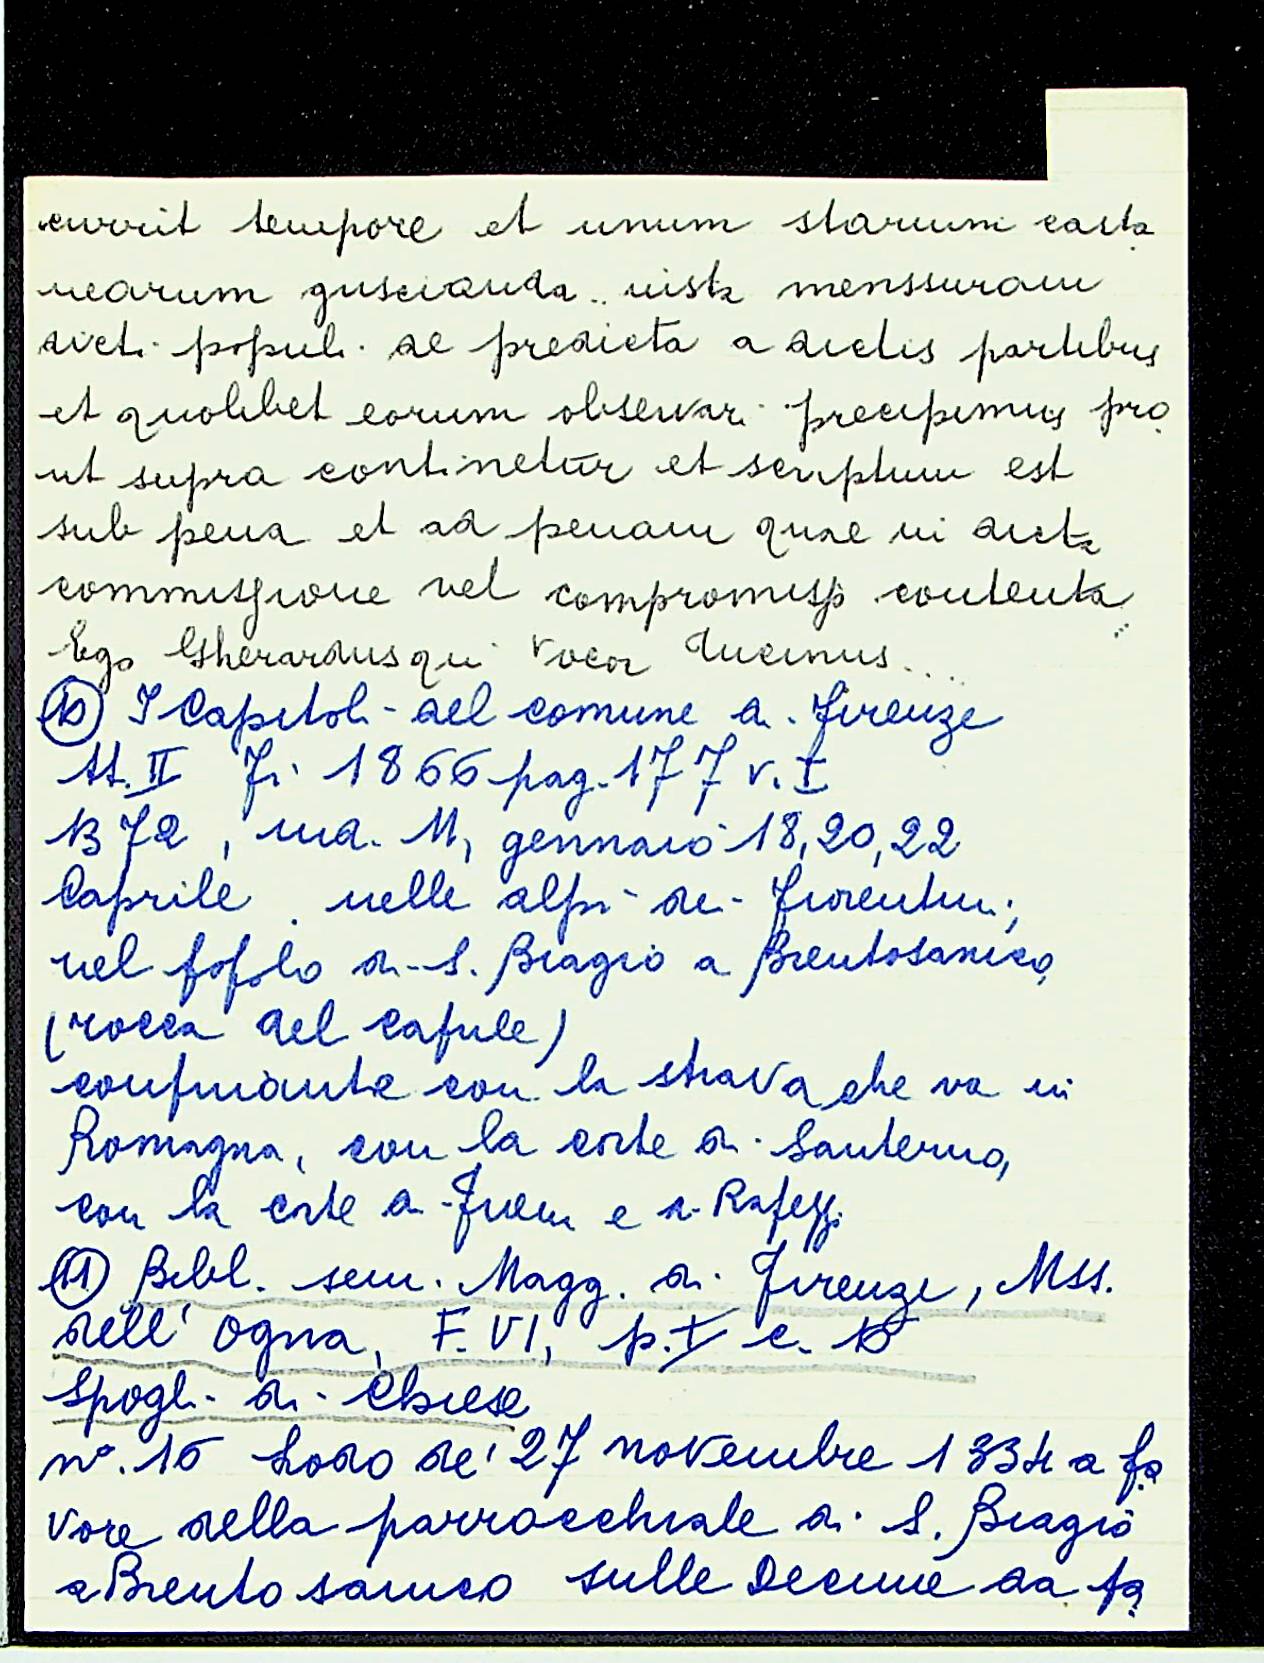 currit tempore et unum starium casta
nearum guscianda.. iusta menssuram
dicti populi. ac predicta a dictis partibus
et quolibet eorum observari precipimus pro
ut supra continetur et scriptum est
sub pena et ad penam quae in dicta
commissione vel compromisso contenta
Ego Gherardus qui vocor Lucinus....
(10) I Capitoli del comune di Firenze
tt. II Fi 1866 pag. 177 v. I
B 72, ind. 11, gennaio 18,20,22
Caprile nelle alpi dei Fiorentini;
nel popolo di S. Biagio a Brentosanico,
(rocca del caprile)
confinante con la strada che va in
Romagna, con la corte di Santerno,
con la corte di e di
(11) Bibl. sem. Magg. di Firenze, Mss.
dell'Ogna, F. VI, p. I c. 10
Spogli di Chiese
n°. 16 Lodo de' 27 novembre 1334 a fa
vore della parrocchiale di S. Biagio
a Brento sanico sulle Decime da fa